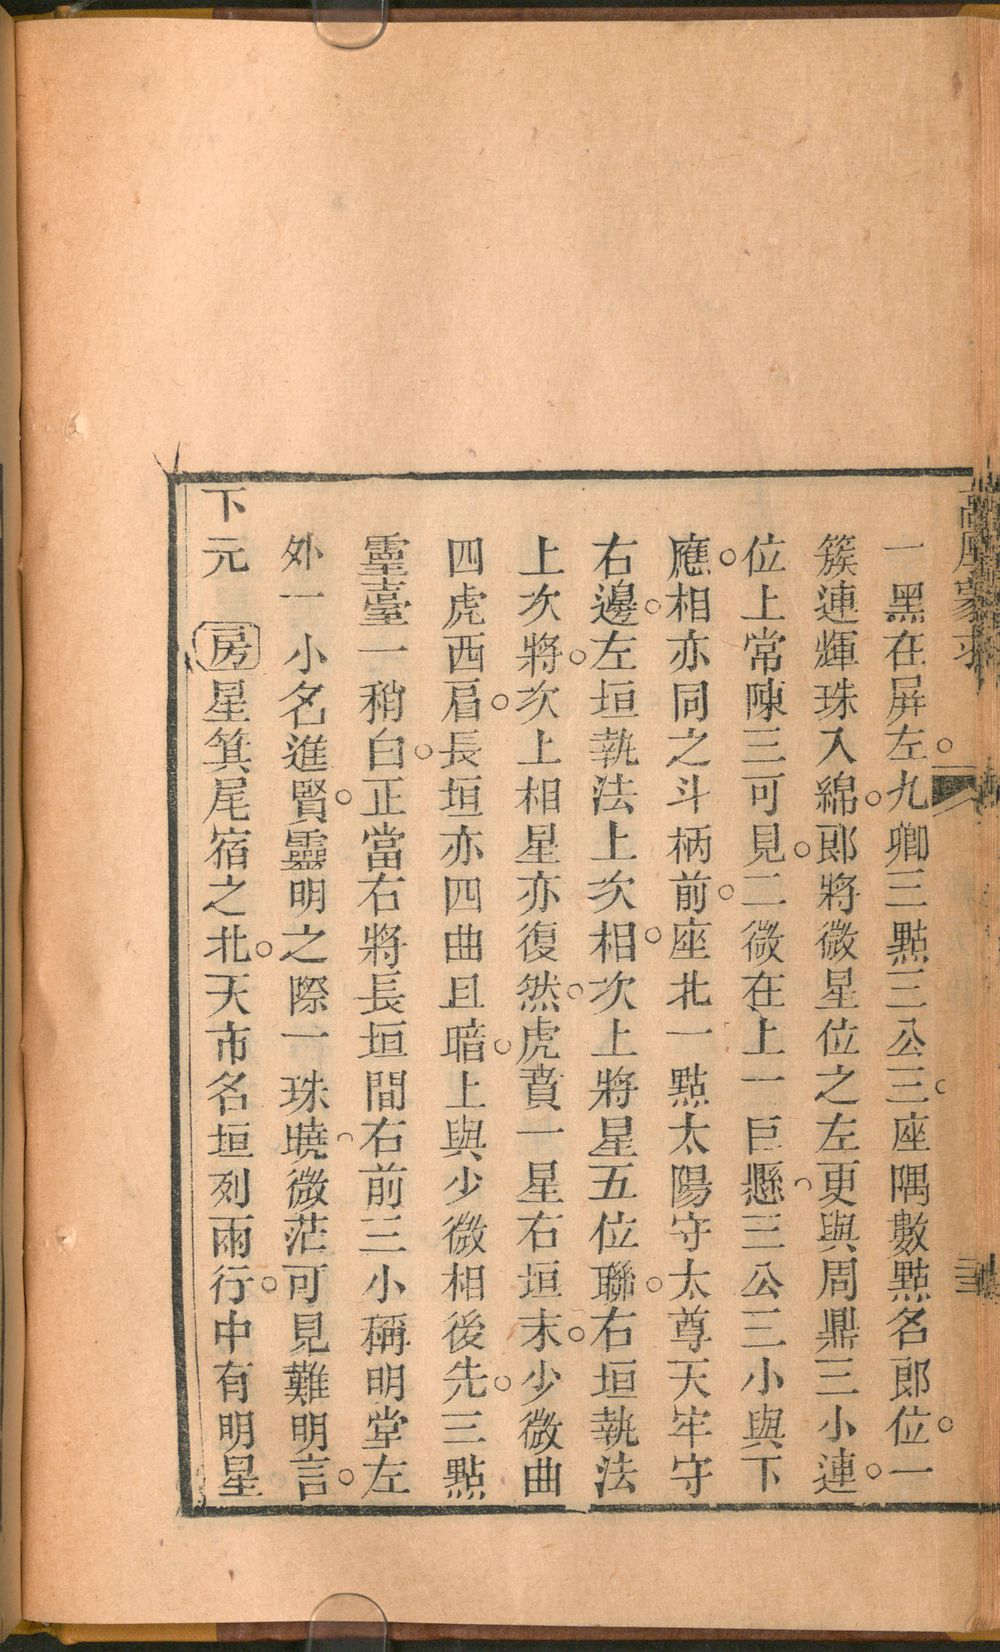 一黑在屏左。九卿三點三公三座隅數點名郎位。一
簇連輝珠入綿。郎將微星位之左更與周鼎三小連。
位上常陳三可見。二微在上一巨懸。三公三小與下
應。相亦同之斗柄前。座北一點太陽守太尊天牢守
右邊。左垣執法上次相。次上將星五位聯。右垣執法
上次將。次上相星亦復然。虎賁一星右垣末。少微曲
四虎西眉。長垣亦四曲且暗。上與少微相後先。三點
靈臺一稍白。正當右將長垣間。右前三小稱明堂左
外一小名進賢。靈明之際一珠曉。微茫可見難明言。
下元 房星箕尾宿之北。天市名垣列兩行。中有明星